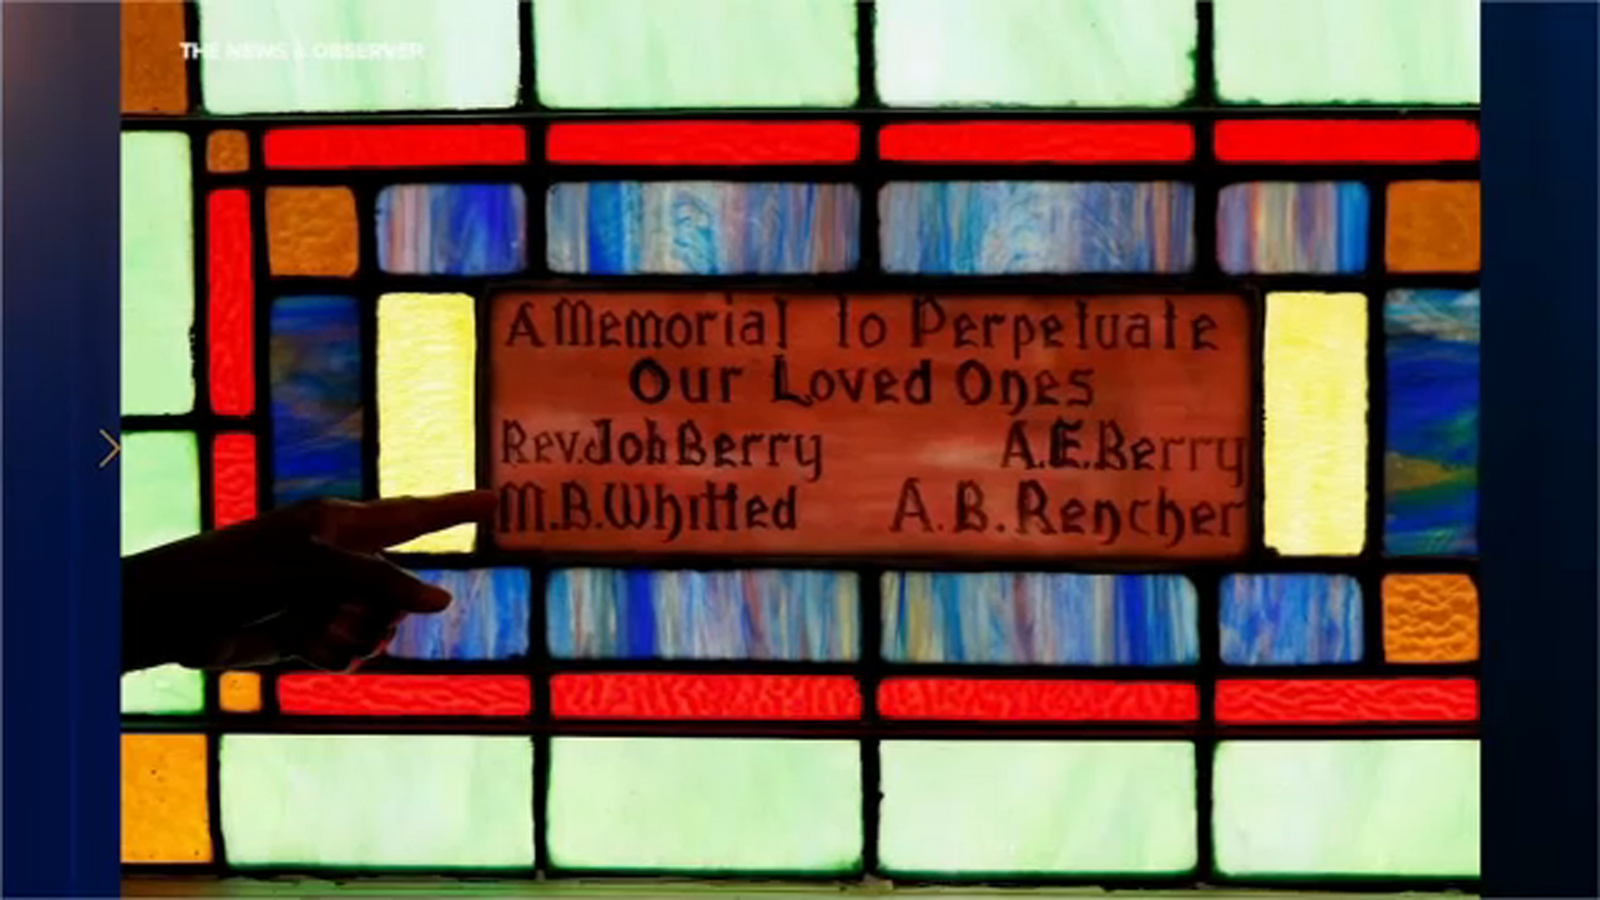 THE NEWS & OBSERVER
A Memorial to Perpetuate
Our Loved Ones
Rev. Job Berry A.E. Berry
M.B. Whitted A.B. Rencher